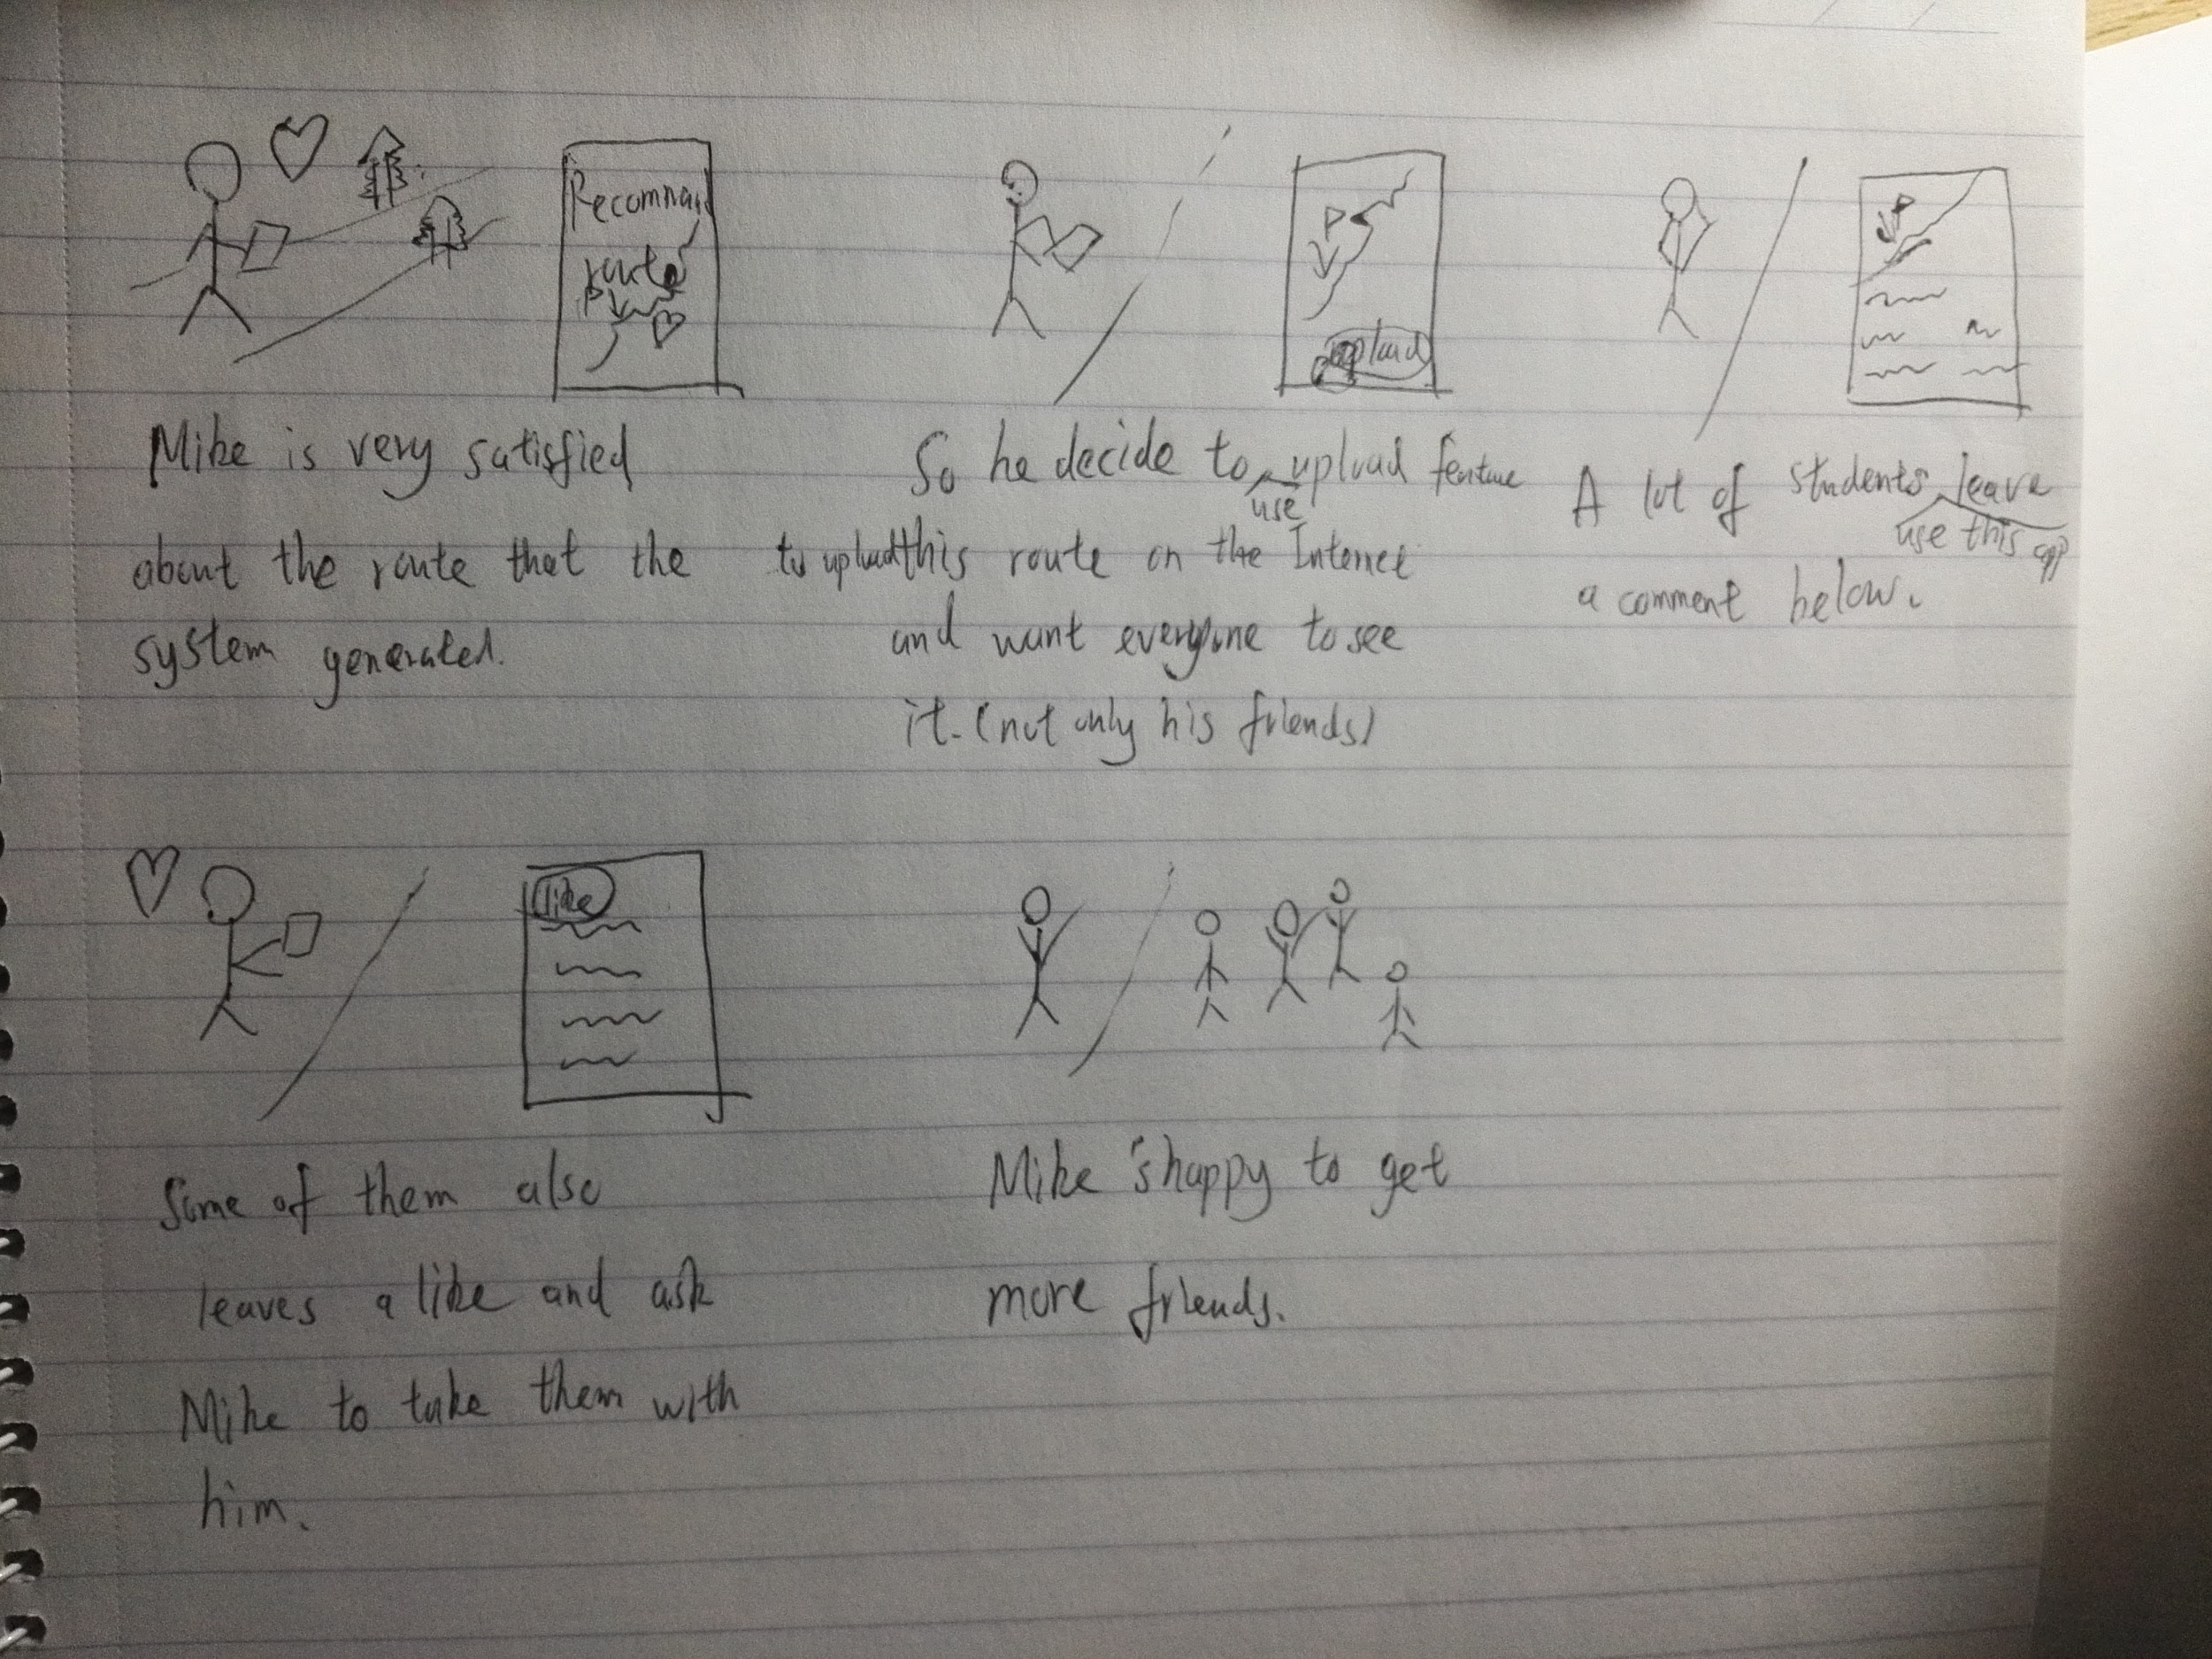 Recommand
route
upload
Mike is very satisfied
about the route that the
system generated.
So he decide to use upload feature
to upload this route on the Internet
and want everyone to see
it. (not only his friends)
A lot of students use this app leave
a comment below.
like
Some of them also
leaves a like and ask
Mike to take them with
him.
Mike 's happy to get
more friends.